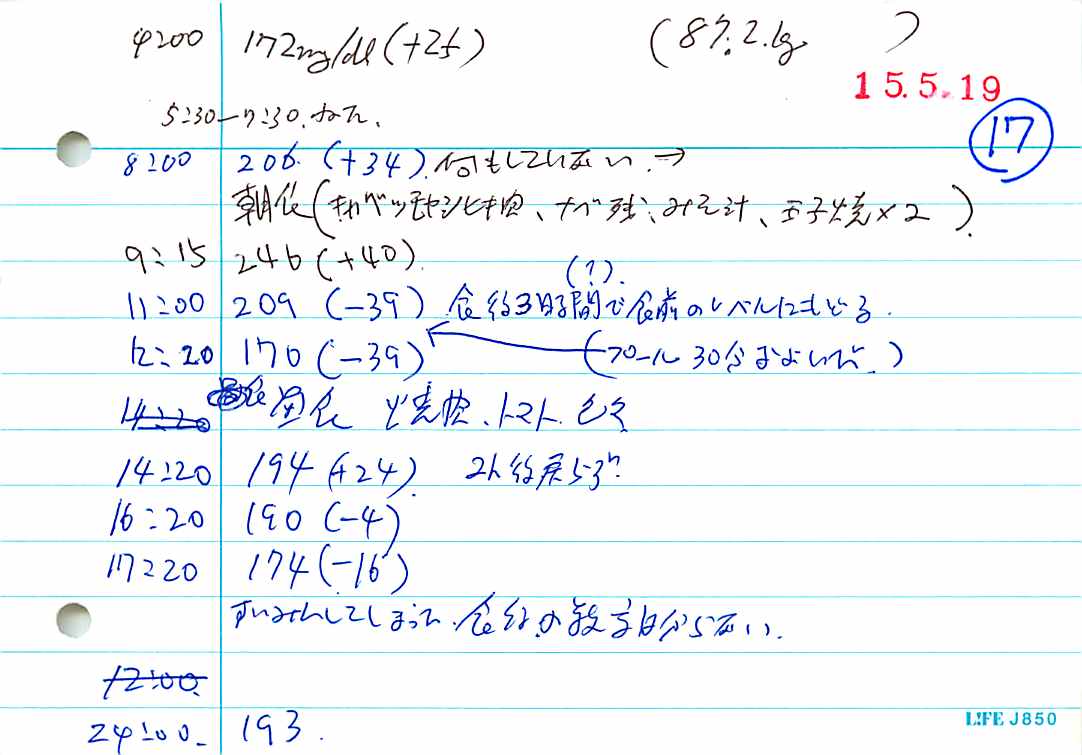 4:00 172mg/dl (+25) (87.2kg )
15.5.19
5:30-7:30.ねた.
17
8:00 206 (+34). 何もしていない ⇒
朝食(キャベツモヤシヒキ肉、ナベ残、みそ汁、玉子焼×2 ).
9:15 246 (+40).
(?).
11:00 209 (-39) 食後3時間で食前のレベルにもどる.
12:20 170 (-39) (プール30分およいだ. )
14:20 昼食 トマト.
14:20 194 (+24) 2h後戻らず?
16:20 190 (-4)
17:20 174 (-16)
すいみんしてしまった.食後の数字分からない.
12:00
24:00- 193.
LIFE J850